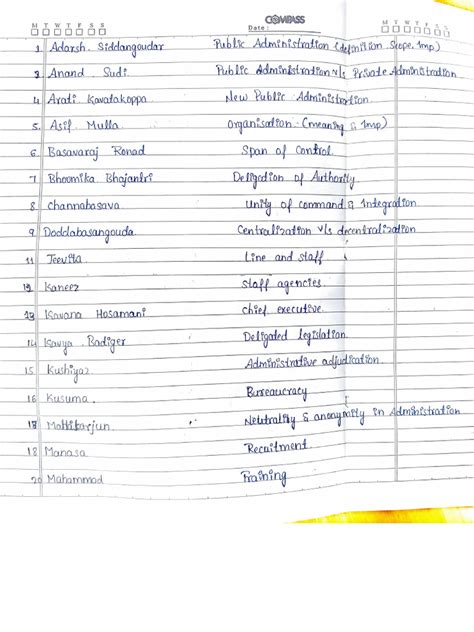 M T W T F S S COMPASS M T W T F S S
Date :
1. Adarsh. Siddangoudar Public Administration (definition Scope, Imp)
3 Anand Sudi Public Administration v/s Private Administration
4 Arati Kavatakoppa New Public Administration.
5. Asif Mulla Organisation: (meaning & Imp)
6 Basavaraj Ronad Span of Control.
7 Bhoomika Bhajantri Deligation of Authority
8 Channabasava Unity of command & Integration
9 Doddabasangouda Centralization v/s decentralization
11 Teevita Line and staff
12 Kaneez staff agencies.
13 Kavana Hosamani chief executive.
14 Kavya Badiger Deligated legislation.
15 Kushiyaz Administrative adjudication.
16 Kusuma Bureaucracy
17 Mallikarjun. Neutrality & anonymity in Administration
18 Manasa Recruitment.
20 Mahammad Training